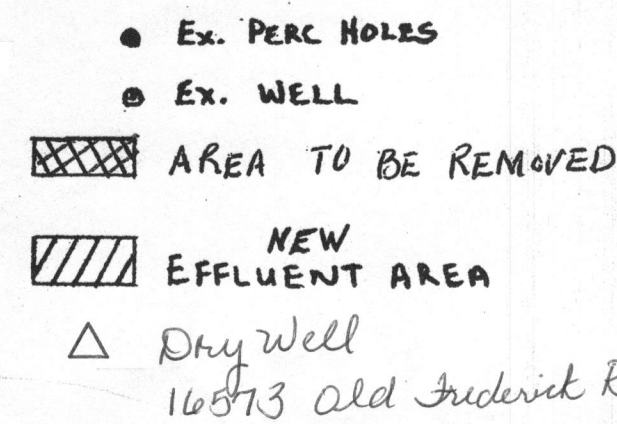 Ex. PERC HOLES
Ex. WELL
AREA TO BE REMOVED
NEW
EFFLUENT AREA
Dry Well
16573 Old Frederick R